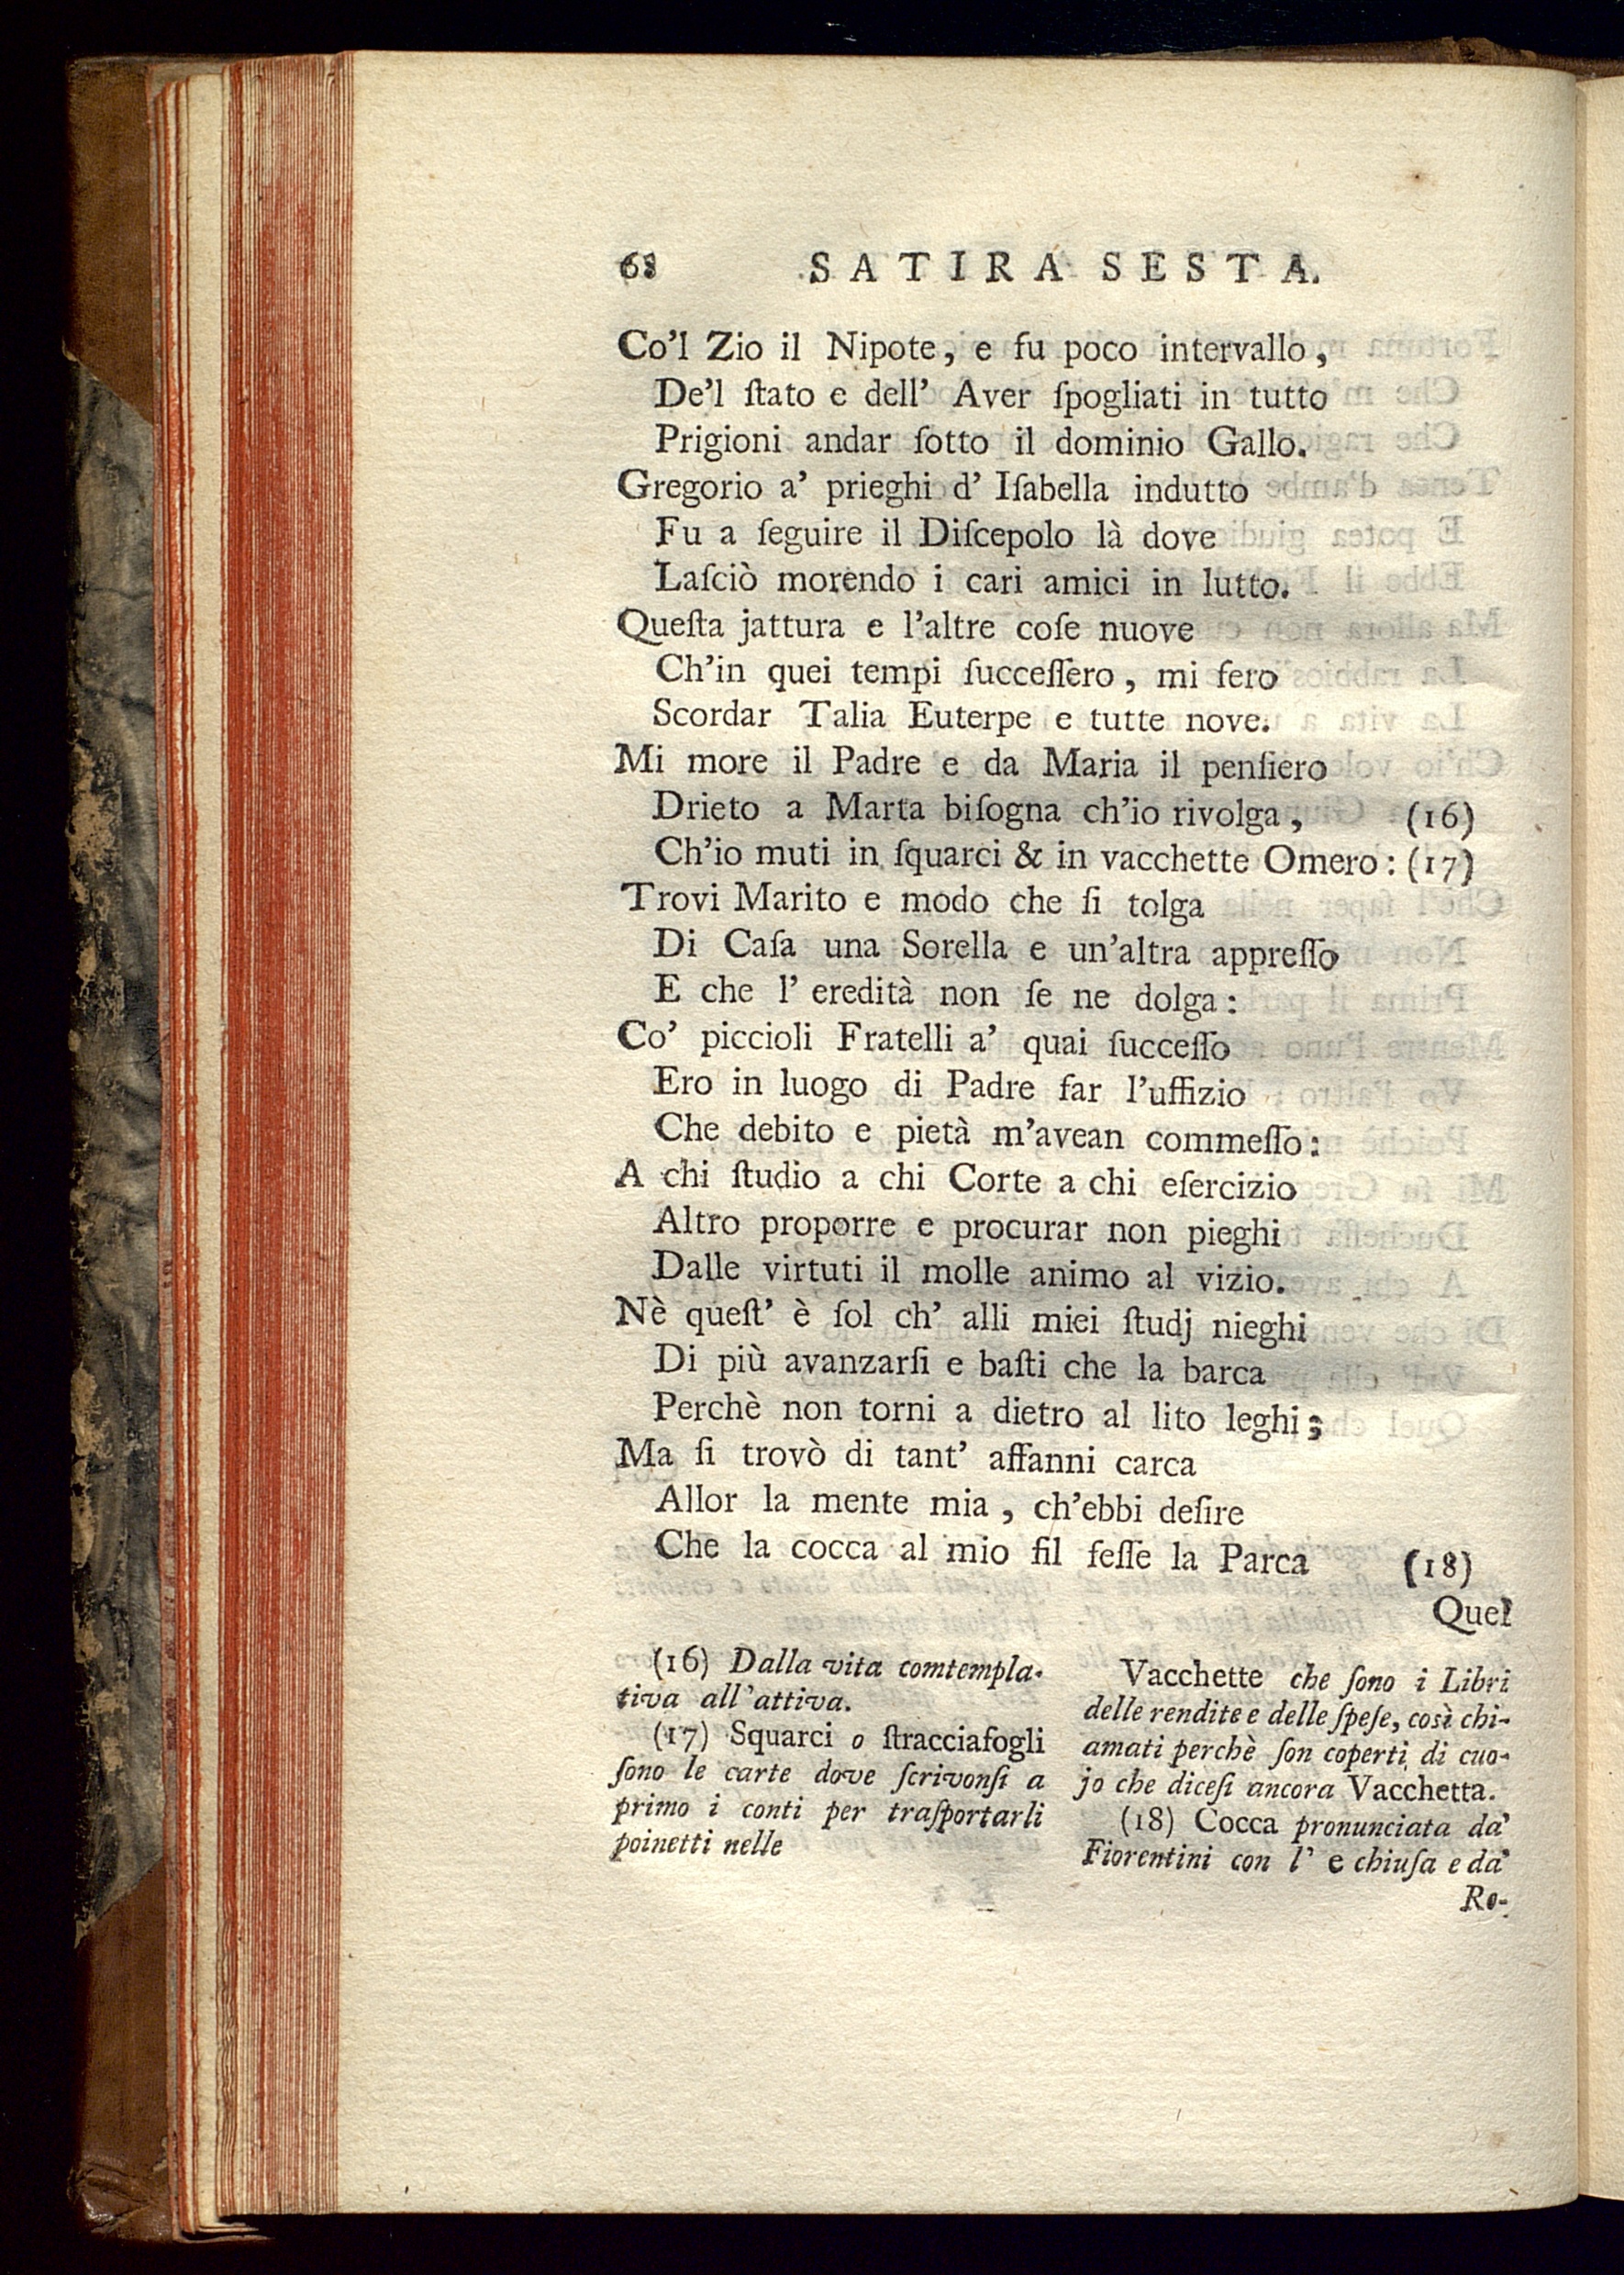 68 SATIRA SESTA.
Co'l Zio il Nipote, e fu poco intervallo,
De'l ſtato e dell' Aver ſpogliati in tutto
Prigioni andar ſotto il dominio Gallo.
Gregorio a' prieghi d' Iſabella indutto
Fu a ſeguire il Diſcepolo là dove
Laſciò morendo i cari amici in lutto.
Queſta jattura e l'altre coſe nuove
Ch'in quei tempi ſucceſſero, mi fero
Scordar Talia Euterpe e tutte nove.
Mi more il Padre e da Maria il penſiero
Drieto a Marta biſogna ch'io rivolga, (16)
Ch'io muti in ſquarci & in vacchette Omero: (17)
Trovi Marito e modo che ſi tolga
Di Caſa una Sorella e un'altra appreſſo
E che l' eredità non ſe ne dolga:
Co' piccioli Fratelli a' quai ſucceſſo
Ero in luogo di Padre far l'uffizio
Che debito e pietà m'avean commeſſo:
A chi ſtudio a chi Corte a chi eſercizio
Altro proporre e procurar non pieghi
Dalle virtuti il molle animo al vizio.
Nè queſt' è ſol ch' alli miei ſtudj nieghi
Di più avanzarſi e baſti che la barca
Perchè non torni a dietro al lito leghi;
Ma ſi trovò di tant' affanni carca
Allor la mente mia, ch'ebbi deſire
Che la cocca al mio fil feſſe la Parca (18)
Quel
(16) Dalla vita comtempla-
tiva all'attiva.
(17) Squarci o ſtracciafogli
ſono le carte dove ſcrivonſi a
primo i conti per traſportarli
poinetti nelle
Vacchette che ſono i Libri
delle rendite e delle ſpeſe, così chi-
amati perchè ſon coperti di cuo-
jo che diceſi ancora Vacchetta.
(18) Cocca pronunciata da'
Fiorentini con l' e chiuſa e da'
Ro-